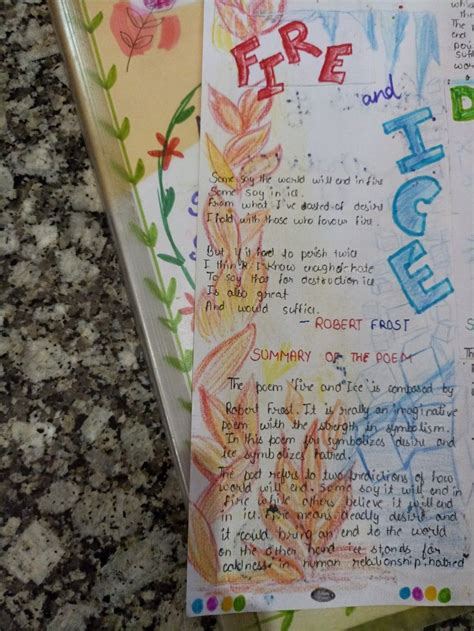 FIRE
and
ICE
Some say the world will end in fire
Some say in ice.
From what I've tasted of desire
I hold with those who favour fire
But if it had to perish twice
I think I know enough of hate
To say that for destruction ice
Is also great
And would suffice.
- ROBERT FROST
SUMMARY OF THE POEM
The poem 'fire and Ice' is composed by
Robert Frost. It is really an imaginative
poem with the strength in symbolism.
In this poem for symbolizes desire and
ice symbolizes hatred.
The poet refers to two predictions of how
world will end. Some say it will end in
fire while others believe it will end
in ice. Fire means deadly desire and
it could bring an end to the world
on the other hand ice stands for
coldness in human relationship. hatred